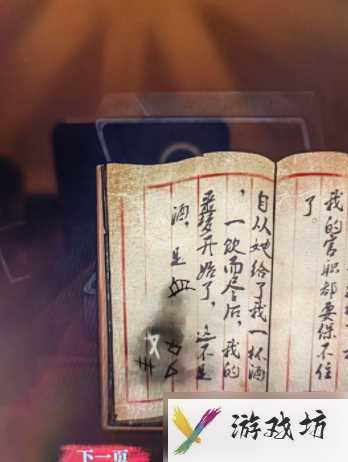 我的官职都要保不住
了。
自从她给了我一杯酒
，一饮而尽后，我的
噩梦开始了，这不是
酒，是
下一页
游戏坊